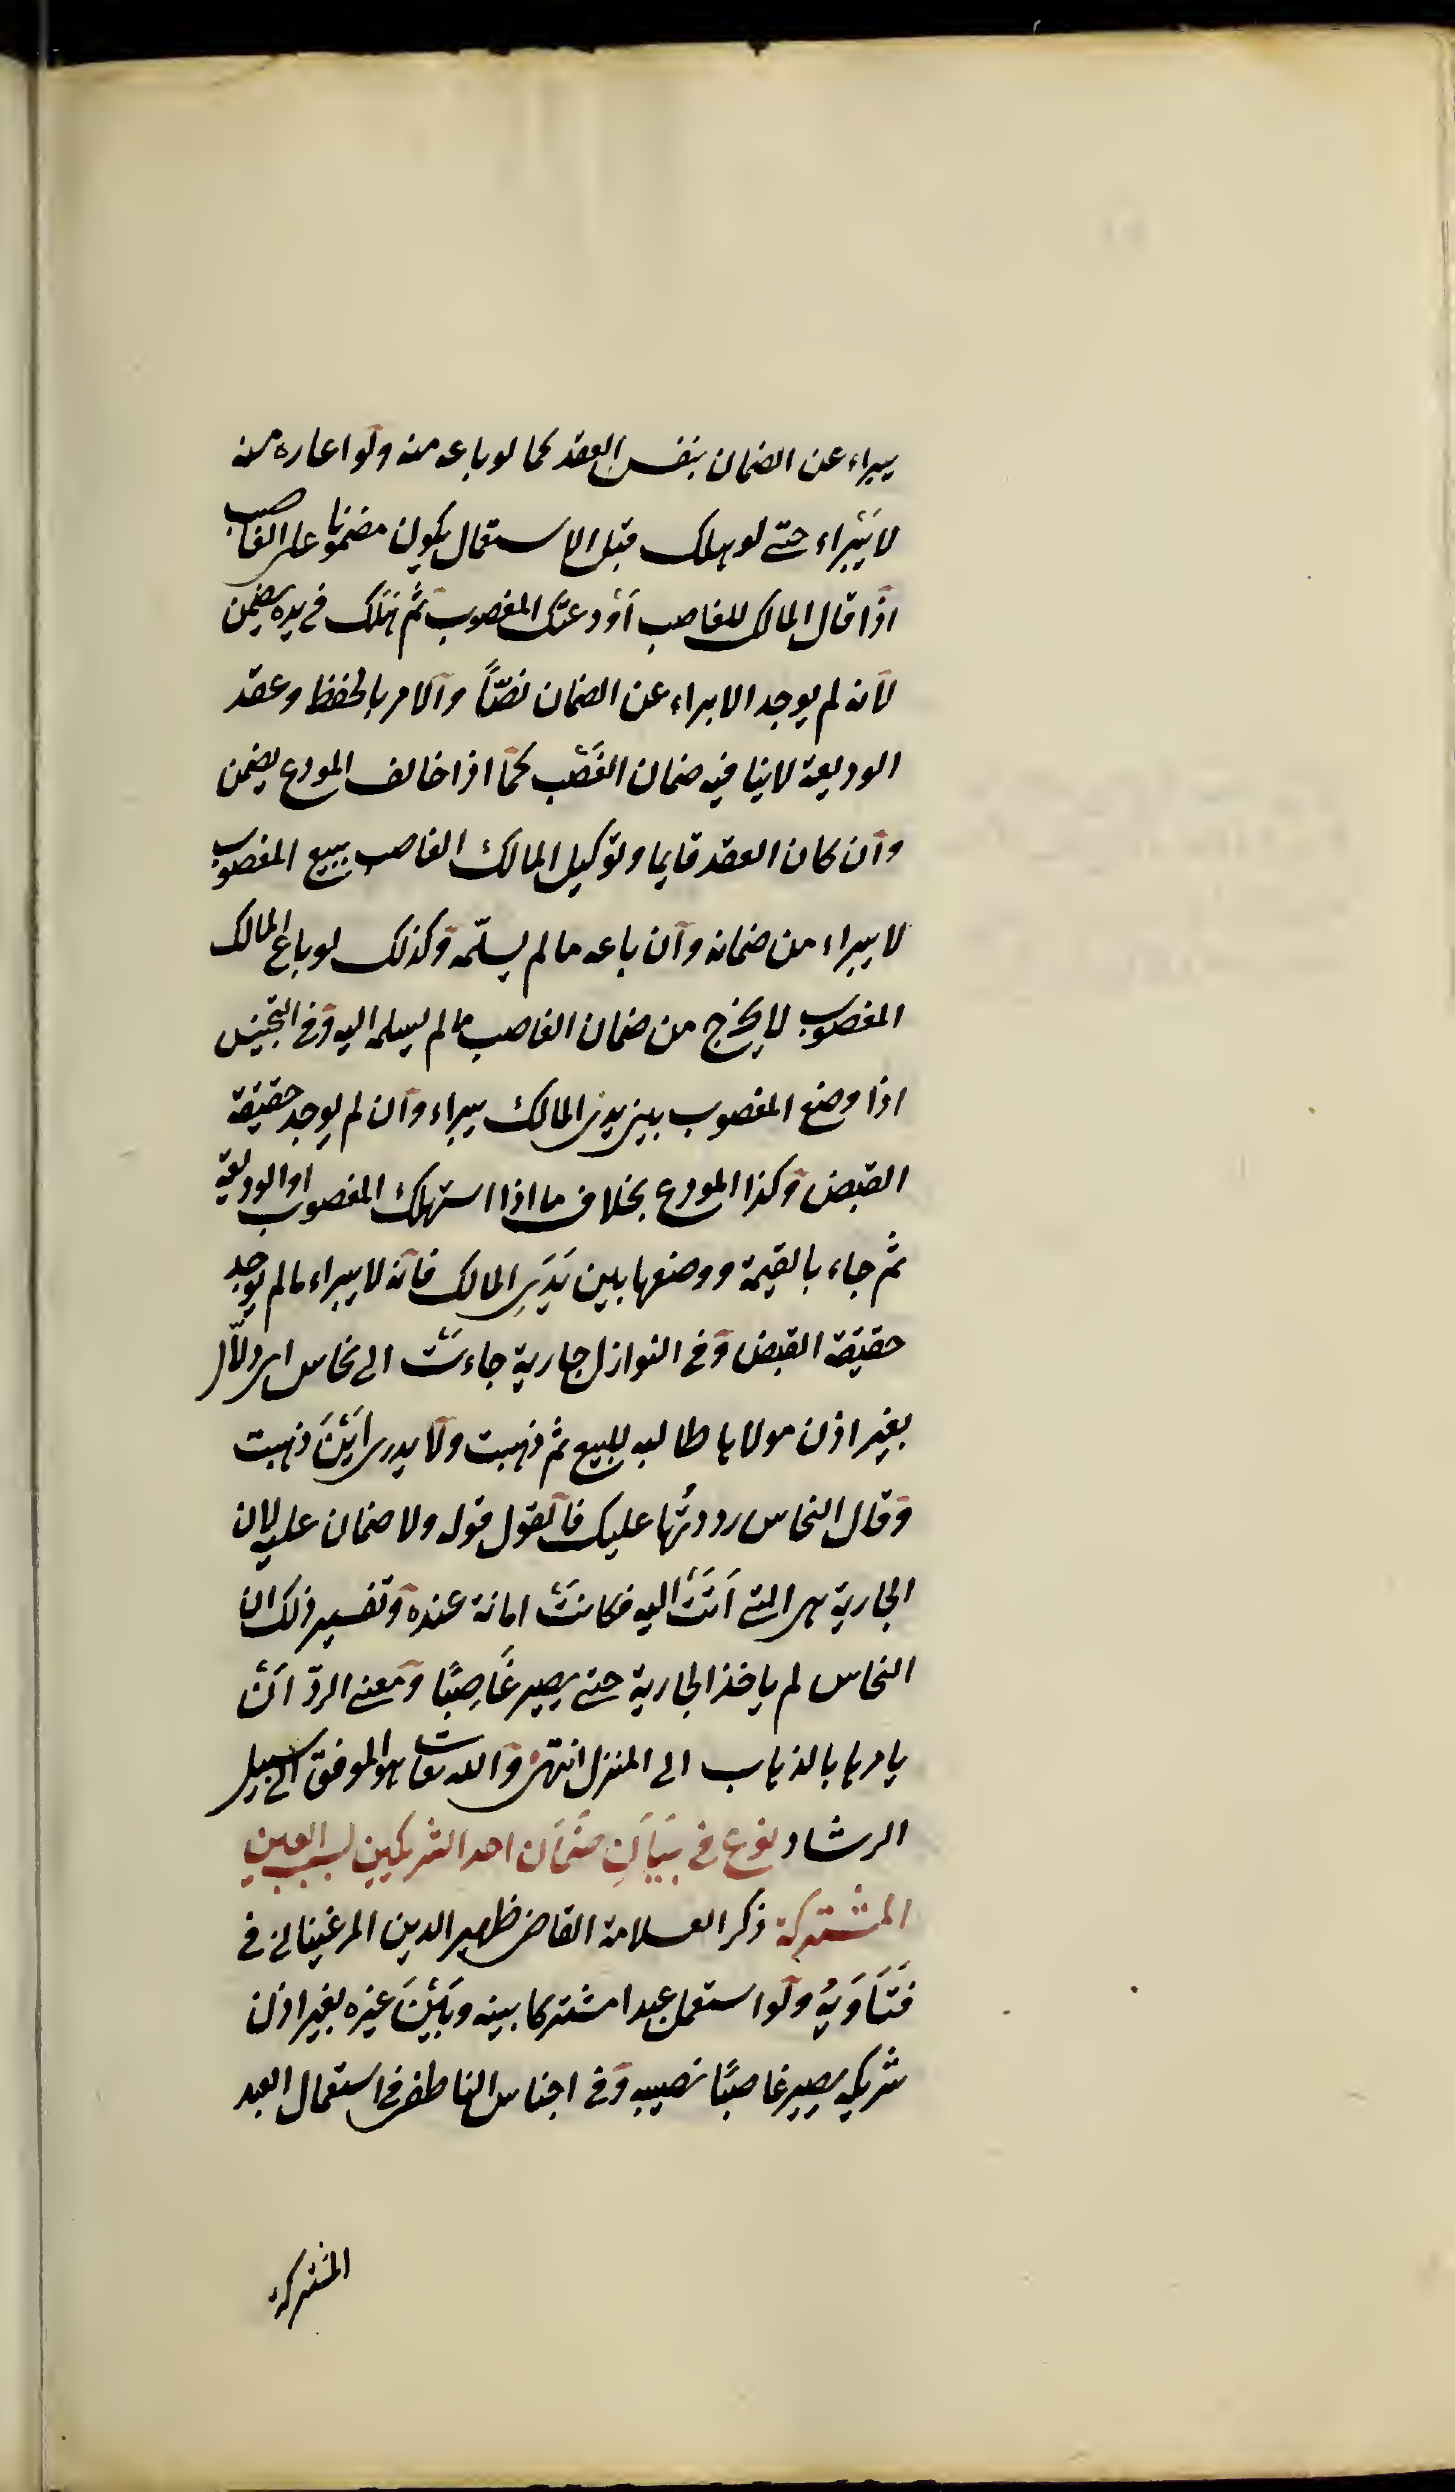 يبراء عن الضمان بنفس العقد كما لو باعه منه ولو اعاره منه
لا يَبْراء حتے لو هلك قبل الاستعمال يكون مضمونا على الغاصب
اذا قال المالك للغاصب أوْدعتك المغصوب ثم هَلك فے يده يضمن
لانه لم يوجد الابراء عن الضمان نصّاً والامر بالحفظ وعقد
الوديعة لا ينافيه ضمان الغَصْب كما اذا خالف المودع يضمن
وان كان العقد قايما وتوكيل المالك الغاصب ببيع المغصوب
لا يبراء من ضمانه وان باعه ما لم يسلّمه وكذلك لو باع المالك
المغصوب لا يخرج من ضمان الغاصب ما لم يسلمه اليه وفے التجنيس
اذا وضع المغصوب بين يدى المالك يبراء وان لم يوجد حقيقة
القبض وكذا المودع بخلاف ما اذا استهلك المغصوب او الوديعة
ثم جاء بالقيمة ووضعها بين يَدَىِ المالك فانه لا يبراء ما لم يوجد
حقيقة القبض وفے النوازل جارية جاءتْ الى نخاس اى دلّال
بغير اذن مولاها طالبه للبيع ثم ذهبت ولا يدرى أيْنَ ذهبت
وقال النخاس رددتُها عليك فالقول قوله ولا ضمان عليه لان
الجارية هى التے أتَتْ اليه فكانتْ امانة عنده وتفسير ذلك ان
النخاس لم ياخذ الجارية حتے يصير غَاصِبًا ومعنے الردّ أنْ
يامرها بالذهاب الى المنزل انتهى والله تعالے هو الموفق الى سبيل
الرشاد نوع فے بَيَانِ ضَمَان احد الشريكين بسبب العين
المشتركة ذكر العلامة القاضى ظهير الدين المرغينانے فے
فَتَاوَيهُ ولو استعمل عبدا مشتركا بينه وبَيْنَ غيره بغير اذن
شريكه يصير غاصبًا نصيبه وفے اجناس الناطفى فے استعمال العبد
المشترك